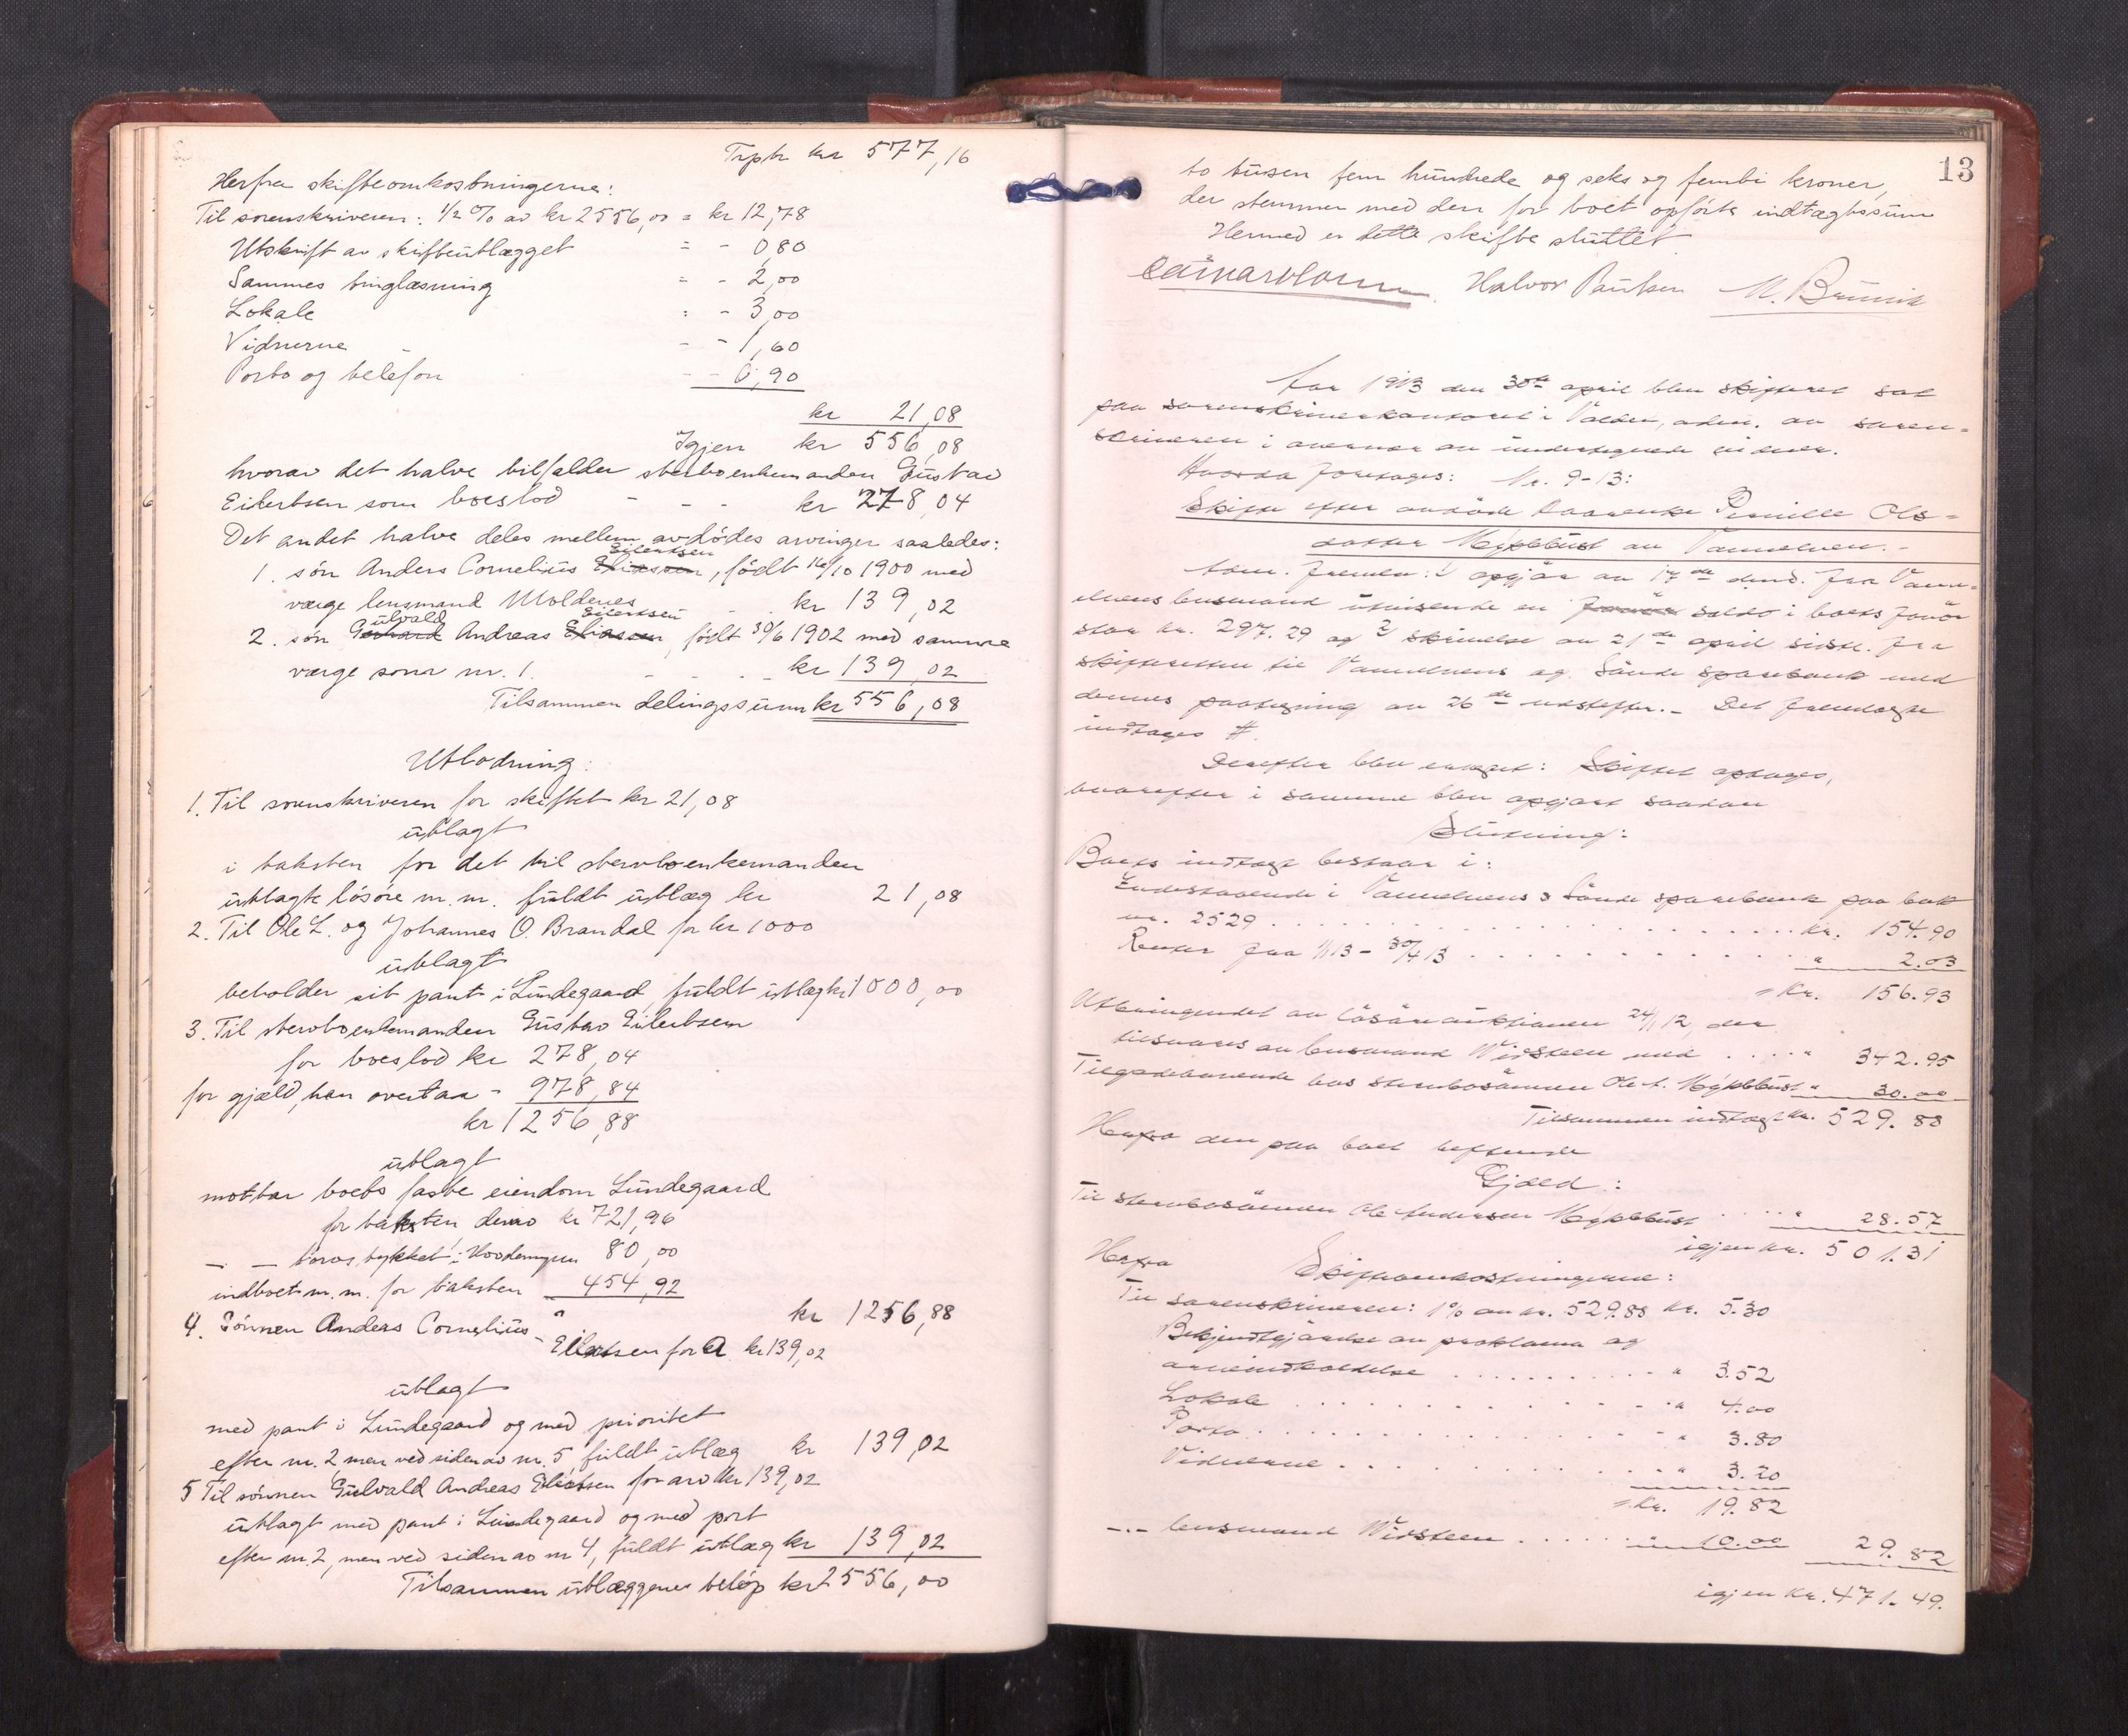 Trpt kr 577,16
Herfra skifteomkostningerne:
Til sorenskriveren: 1/2 % av kr 2556,00 = kr 12,78
Utskrift av skifteutlægget = - 0,80
Sammes tinglæsning = - 2,00
Lokale = - 3,00
Vidnerne - - 1,60
Porto og telefon - - 0,90
kr 21,08
Igjen kr 556,08
hvorav det halve tilfalder sterboenkemanden Gustav
Eilertsen som boeslod - - - kr 278,04
Det andet halve deles mellem avdødes arvinger saaledes:
Eilertsen
1. søn Anders Cornelius Eliassen, født 16/10 1900 med
verge lensmand Moldenes - - kr 139,02
ulvald Eilertsen
2. søn Gerhard Andreas Eliassen, født 30/6 1902 med samme
værge som nr. 1. - - - kr 139,02
Tilsammen delingssum kr 556,08
Utlodning:
1. Til sorenskriveren for skiftet kr 21,08
utlagt
i taksten for det til sterboenkemanden
utlagte løsøre m.m. fuldt utlæg kr 21,08
2. Til Ole L. og Johannes O. Brandal for kr 1000
utlagt
beholder sit pant i Lundegaard, fuldt utlæg kr 1000,00
3. Til sterboenkemanden Gustav Eilertsen
for boeslod kr 278,04
for gjæld, han overtar - 978,84
kr 1256,88
utlagt
mottar boets faste eiendom Lundegaard
for taksten derav kr 721,96
— — torvstykket i Hovdemyren 80,00
indboet m.m. for taksten 454,92
kr 1256,88
4. Sønnen Anders Cornelius
Eilertsen for A kr 139,02
utlagt
med pant i Lundegaard og med prioritet
efter nr. 2 men ved siden av nr. 5 fuldt utlæg kr 139,02
5 Til sønnen Gulvald Andreas Eilertsen for arv kr 139,02
utlagt med pant i Lundegaard og med port
efter nr. 2, men ved siden av nr 4, fuldt utlæg kr 139,02
Tilsammen utlæggenes beløp kr 2556,00
13
to tusen fem hundrede og seks og femti kroner,
der stemmer med den for boet opførte indtægtssum
Hermed er dette skifte sluttet
Halvor Paulsen M. Brunvik
Aar 1913 den 30te april blev skifteret sat
paa sorenskriverkontoret i Volden, adm. av soren-
skriveren i overvær av undertegnede vidner.
Hvorda foretages: Nr. 9-13:
Skifte efter avdøde kaarenke Pernille Ols-
datter Myklebust av Vannelven.-
Som. fremla: 1 opgjør av 17de ds. fra Vann-
elvens lensmand utvisende en saldo i boets favør
stor kr. 297.29 og 2 skrivelse av 21de april sidstl. fra
skifteretten til Vannelvens og Sande sparebank med
dennes paategning av 26de næstefter.- Det fremlagte
indtages #.
Derefter blev ertræt: Skiftet optages,
hvorefter i samme blev opgjort saadan
Slutning:
Boets indtægt bestaar i:
Indestaaende i Vannelvens & Sande sparebank paa bok
nr. 2529 . . . . kr. 154.90
Renter fra 1/1 13 - 30/4 13 . . . . " 2.03
= Kr. 156.93
Utbringendet av løsøreauktionen 24/1 12, der
tilsvares av lensmand Vidsteen med . . . . " 342.95
Tilgodehavende hos sterbosønnen Ole A. Myklebust " 30.00
Tilsammen indtægt kr. 529.88
Herfra den paa boet heftende
Gjæld:
Til sterbosønnen Ole Andersen Myklebust . . . . " 28.57
igjen kr. 501.31
Herfra Skifteomkostningerne:
Til sorenskriveren: 1% av kr. 529.88 kr. 5.30
Bekjendtgjørelse av proklama og
arveindkaldelse . . . . " 3.52
Lokale . . . . " 4.00
Porto . . . . " 3.80
Vidnerne . . . . " 3.20
= Kr. 19.82
-.- lensmand Vidsteen . . . . " 10.00 29.82
igjen kr. 471.49.